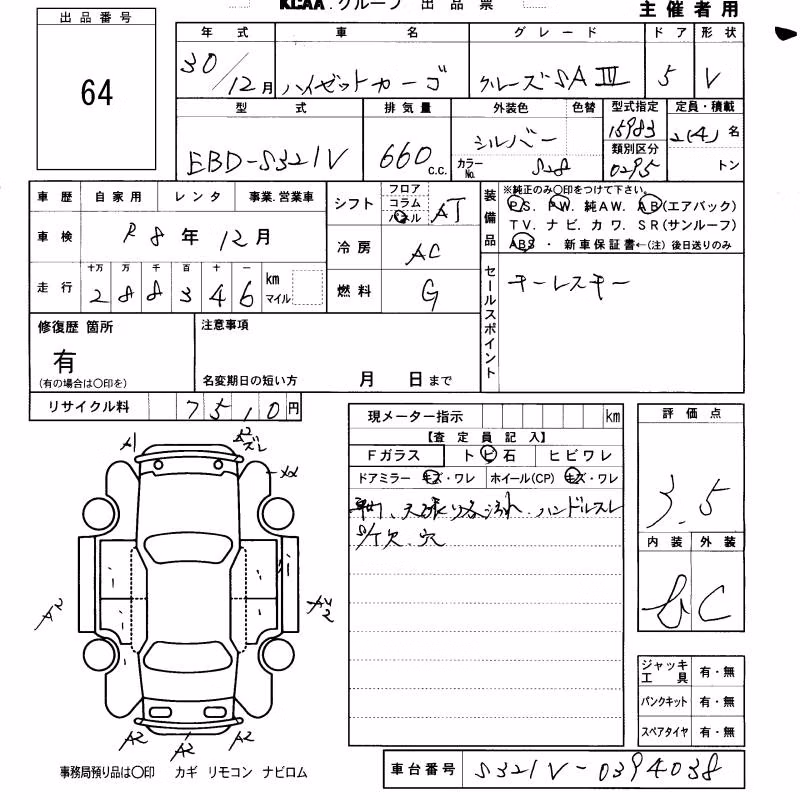 KCAA.グループ 出品票
主催者用
出品番号
64
年式 車名 グレード ドア 形状
30/12月 ハイゼットカーゴ クルーズSAⅢ 5 V
型式 排気量 外装色 色替 型式指定 定員・積載
EBD-S321V 660 c.c. シルバー 15983 2(4)名
カラーNo. S28 類別区分 0295 トン
車歴 自家用 レンタ 事業.営業車
車検 R8年12月
走行 十万 万 千 百 十 一
288346 km マイル
シフト フロア コラム パネル AT
冷房 AC
燃料 G
装備品 ※純正のみ○印をつけて下さい。
P.S. PW. 純AW. AB(エアバック)
TV. ナビ. カワ. SR(サンルーフ)
ABS ・ 新車保証書←(注) 後日送りのみ
セールスポイント
キーレスキー
修復歴 箇所
有
(有の場合は○印を)
注意事項
名変期日の短い方 月 日まで
リサイクル料 7510円
現メーター指示 km
【査定員記入】
Fガラス トビ石 ヒビワレ
ドアミラー キズ・ワレ ホイール(CP) キズ・ワレ
天張り 汚れ、ハンドルスレ
欠 穴
評価点
3.5
内装 外装
C
A1
A2
ズレ
A2
A2
A2 A2 A2
ジャッキ工具 有・無
パンクキット 有・無
スペアタイヤ 有・無
事務局預り品は○印 カギ リモコン ナビロム
車台番号 S321V-0394038